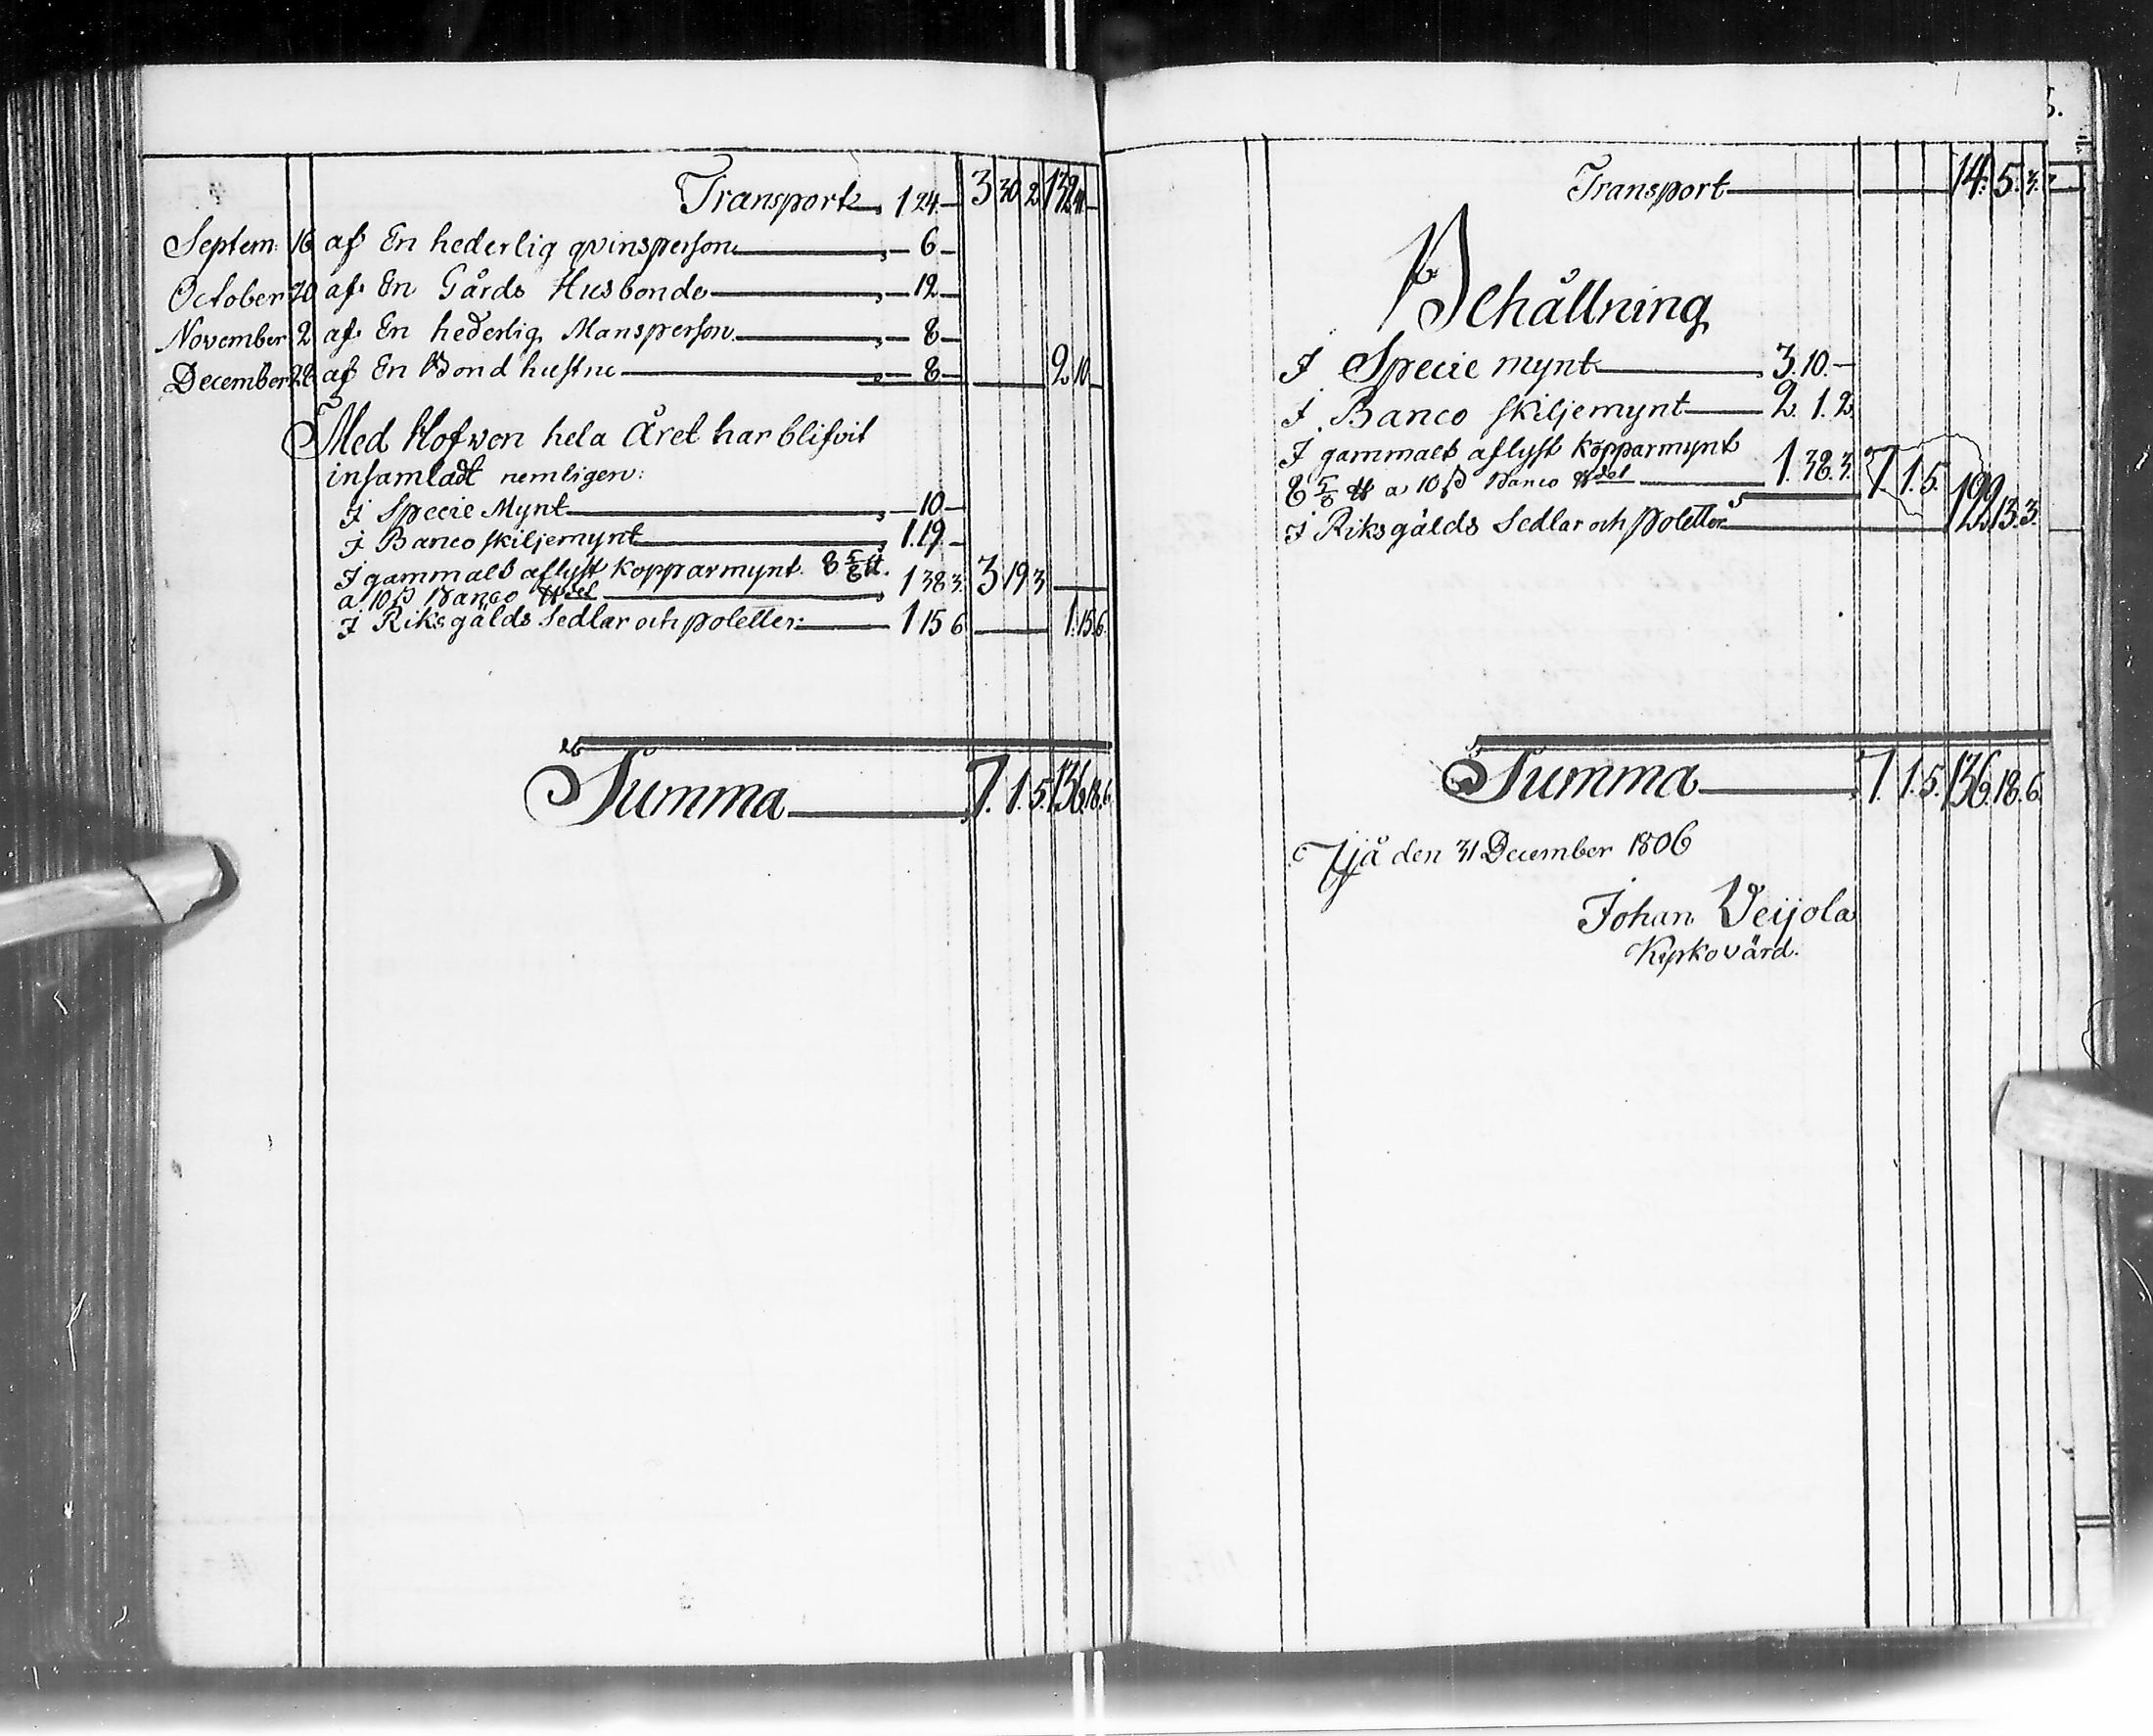 Transport 1 24 — 3 30 2 132 40 —
Septem: 16 af En hederlig qvinsperson — 6 —
October 20 af En Gårds Husbonde — 12 —
November 2 af En hederlig Mansperson — 8 —
December 28 af En Bond hustru — 8 — 2 10 —
Med Hofwen hela Året har blifvit
insamladt nemligen:
J Specie Mynt — 10 —
J Banco skiljemynt 1. 19. —
J gammalt aflyst kopparmynt 8 5/6 ℔.
a 10 ß Banco ℔det 1 38 3. 3 19 3 —
J Riksgälds Sedlar och poletter: 1 15 6 — 1. 15. 6.
Summa 7. 1. 5. 136. 18. 6.
Transport 14. 5. 3.
Behållning
J Specie mynt 3. 10. —
J Banco skiljemynt 2. 1. 2.
J gammalt aflyst kopparmynt
8 5/6 ℔ a 10 ß Banco ℔det 1. 38. 3. 7. 1. 5.
J Riksgälds Sedlar och poletter 122 13. 3.
Summa 7. 1. 5. 136. 18. 6.
Yjå den 31 December 1806
Johan Veijola
Kyrkovärd.